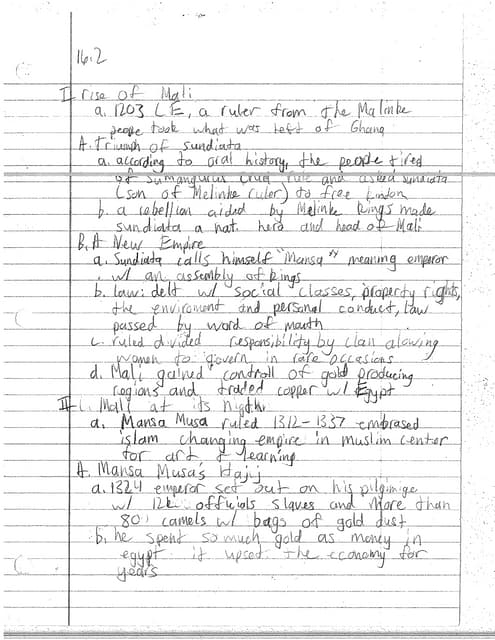 16.2
I rise of Mali
a. 1203 CE, a ruler from the Malinke
people took what was left of Ghana
A. Triumph of sundiata
a. according to oral history, the people tired
of sumanguru's cruel rule and asked sundiata
(son of Melinke ruler) to free
b. a rebellion aided by Melinke kings made
sundiata a nat. hero and head of Mali
B. A New Empire
a. Sundiata calls himself "Mansa" meaning emperor
w/ an assembly of kings
b. law: delt w/ social classes, property rights,
the enviroment and personal conduct, law
passed by word of mouth
c. ruled divided responsibility by clan alowing
women to govern in rare occasions
d. Mali gained controll of gold producing
regions and traded copper w/ Egypt
II Mali at its higth
a. Mansa Musa ruled 1312-1337 embrased
islam changing empire in muslim center
for art & learning
A. Mansa Musa's Hajj
a. 1324 emperor set out on his pilgimige
w/ 12k officiols slaves and more than
80 camels w/ bags of gold dust
b. he spent so much gold as money in
egypt it upset the economy for
years